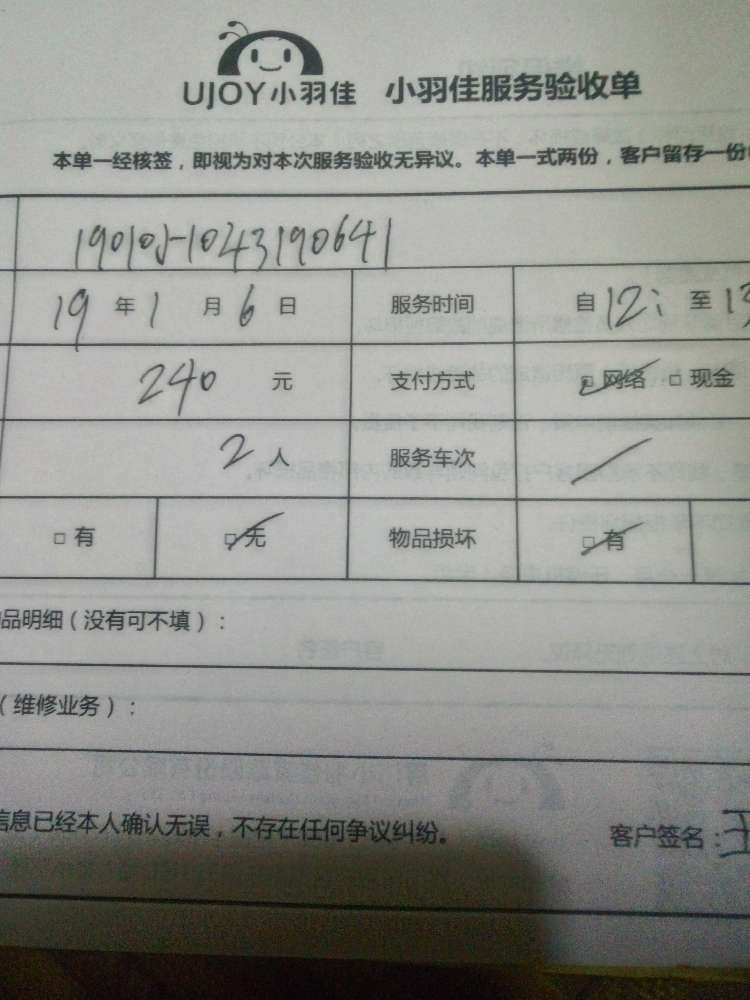 UJOY小羽佳 小羽佳服务验收单
本单一经核签，即视为对本次服务验收无异议。本单一式两份，客户留存一份
190105-1043190641
19 年 1 月 6 日 服务时间 自 12: 至 13
240 元 支付方式 □ 网络 □ 现金
2 人 服务车次
□ 有 □ 无 物品损坏 □ 有
品明细（没有可不填）：
（维修业务）：
信息已经本人确认无误，不存在任何争议纠纷。 客户签名：王